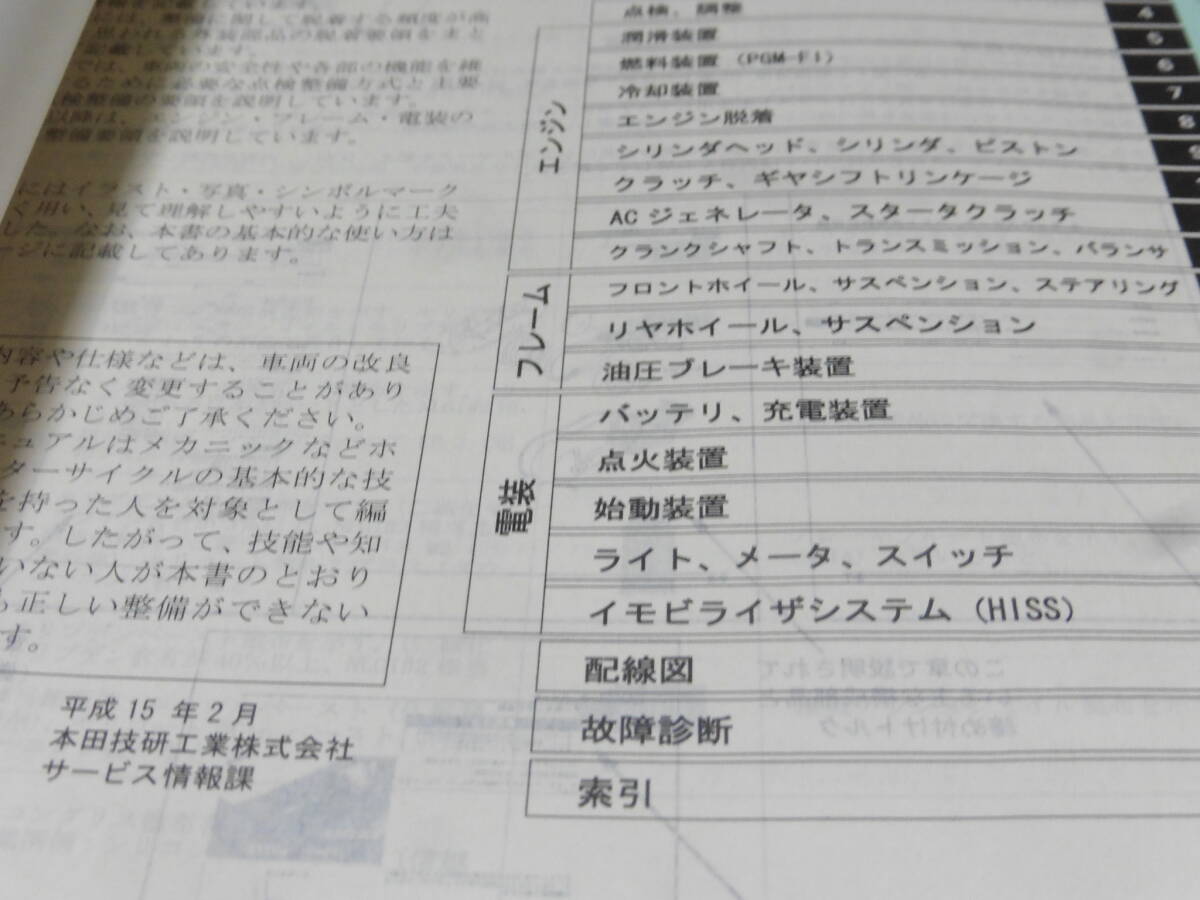 を記載しています。
には、整備に関して脱着する頻度が高
思われる外装部品の脱着要領をまと
記載しています。
では、車両の安全性や各部の機能を維
るために必要な点検整備方式と主要
検整備の要領を説明しています。
以降は、エンジン・フレーム・電装の
整備要領を説明しています。
にはイラスト・写真・シンボルマーク
く用い、見て理解しやすいように工夫
した。なお、本書の基本的な使い方は
ージに記載してあります。
内容や仕様などは、車両の改良
予告なく変更することがあり
あらかじめご了承ください。
ニュアルはメカニックなどホ
ターサイクルの基本的な技
を持った人を対象として編
す。したがって、技能や知
いない人が本書のとおり
も正しい整備ができない
す。
平成 15 年 2 月
本田技研工業株式会社
サービス情報課
点検、調整 4
エンジン
潤滑装置 5
燃料装置 (PGM-FI) 6
冷却装置 7
エンジン脱着 8
シリンダヘッド、シリンダ、ピストン 9
クラッチ、ギヤシフトリンケージ
AC ジェネレータ、スタータクラッチ
クランクシャフト、トランスミッション、バランサ
フレーム
フロントホイール、サスペンション、ステアリング
リヤホイール、サスペンション
油圧ブレーキ装置
電装
バッテリ、充電装置
点火装置
始動装置
ライト、メータ、スイッチ
イモビライザシステム (HISS)
配線図
故障診断
索引